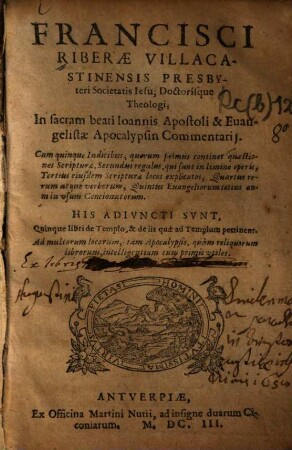 FRANCISCI
RIBERÆ VILLACA-
STINENSIS PRESBY-
teri Societatis Iesu, Doctorisque
Theologi,
In sacram beati Ioannis Apostoli & Euan-
gelistæ Apocalypsin Commentarij.
Cum quinque Indicibus, quorum primus continet quæstio-
nes Scripturæ, Secundus regulas, qui sunt in limine operis,
Tertius eiusdem Scripturæ locos explicatos, Quartus re-
rum atque verborum, Quintus Euangeliorum totius anni
in usum Concionatorum.
HIS ADIVNCTI SVNT,
Quinque libri de Templo, & de iis quæ ad Templum pertinent.
Ad multorum locorum, tam Apocalypsis, quàm reliquorum
librorum, intelligentiam cum primis utiles.
Ex
PIETAS HOMINI
ANTVERPIÆ,
Ex Officina Martini Nutii, ad insigne duarum Ci-
coniarum. M. DC. III.